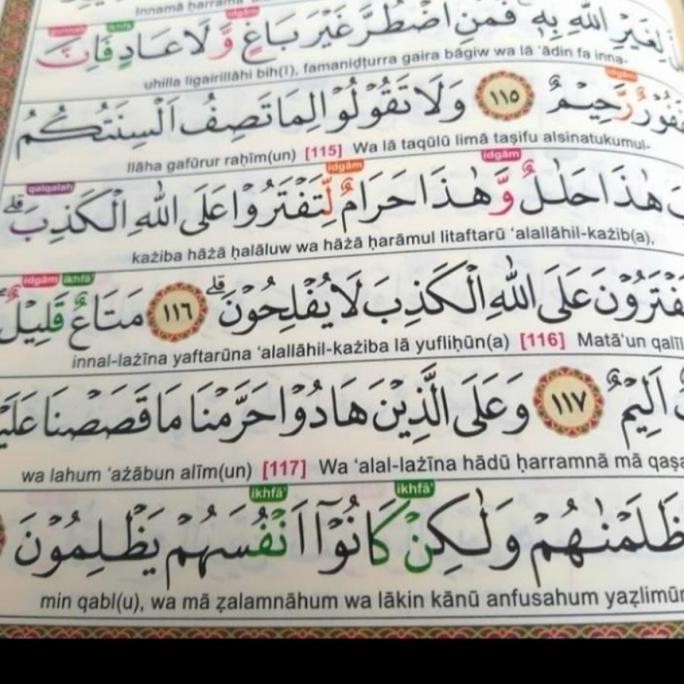 Innamā ḥarrama
لِغَيْرِ اللّٰهِ بِهٖ فَمَنِ اضْطُرَّ غَيْرَ بَاغٍ وَّلَا عَادٍ فَاِنَّ
uhilla ligairillāhi bih(ī), famaniḍṭurra gaira bāgiw wa lā ‘ādin fa inna-
غَفُوْرٌ رَّحِيْمٌ ١١٥ وَلَا تَقُوْلُوْا لِمَا تَصِفُ اَلْسِنَتُكُمُ
llāha gafūrur raḥīm(un) [115] Wa lā taqūlū limā taṣifu alsinatukumul-
هٰذَا حَلٰلٌ وَّهٰذَا حَرَامٌ لِّتَفْتَرُوْا عَلَى اللّٰهِ الْكَذِبَۗ
każiba hāżā ḥalāluw wa hāżā ḥarāmul litaftarū ‘alallāhil-każib(a),
يَفْتَرُوْنَ عَلَى اللّٰهِ الْكَذِبَ لَا يُفْلِحُوْنَۗ ١١٦ مَتَاعٌ قَلِيْلٌ
innal-lażīna yaftarūna ‘alallāhil-każiba lā yufliḥūn(a) [116] Matā‘un qalīl
اَلِيْمٌ ١١٧ وَعَلَى الَّذِيْنَ هَادُوْا حَرَّمْنَا مَا قَصَصْنَا عَلَيْ
wa lahum ‘ażābun alīm(un) [117] Wa ‘alal-lażīna hādū ḥarramnā mā qaṣa
ظَلَمْنٰهُمْ وَلٰكِنْ كَانُوْٓا اَنْفُسَهُمْ يَظْلِمُوْنَ
min qabl(u), wa mā ẓalamnāhum wa lākin kānū anfusahum yaẓlimūn